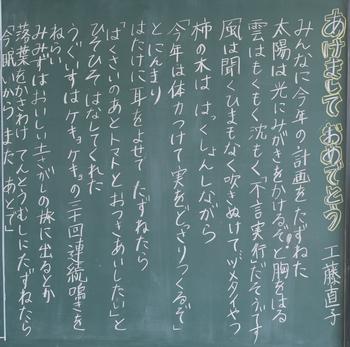 あけまして おめでとう
工藤直子
みんなに今年の計画をたずねた
太陽は光にみがきをかけるぞと胸をはる
雲はもくもく沈もく不言実行だそうです
風は聞くひまもなく吹きぬけて…ツメタイやつ
柿の木は はっくしょんしながら
「今年は体力つけて実をどっさりつくるぞ」
とにんまり
はたけに耳をよせて たずねたら
「はくさいのあとトマトとおつきあいしたい」と
ひそひそ はなしてくれた
うぐいすは ケキョケキョの三十回連続鳴きを
ねらい
みみずはおいしい土さがしの旅に出るとか
落葉をかさわけ てんとうむしにたずねたら
「今眠いから また あとで」